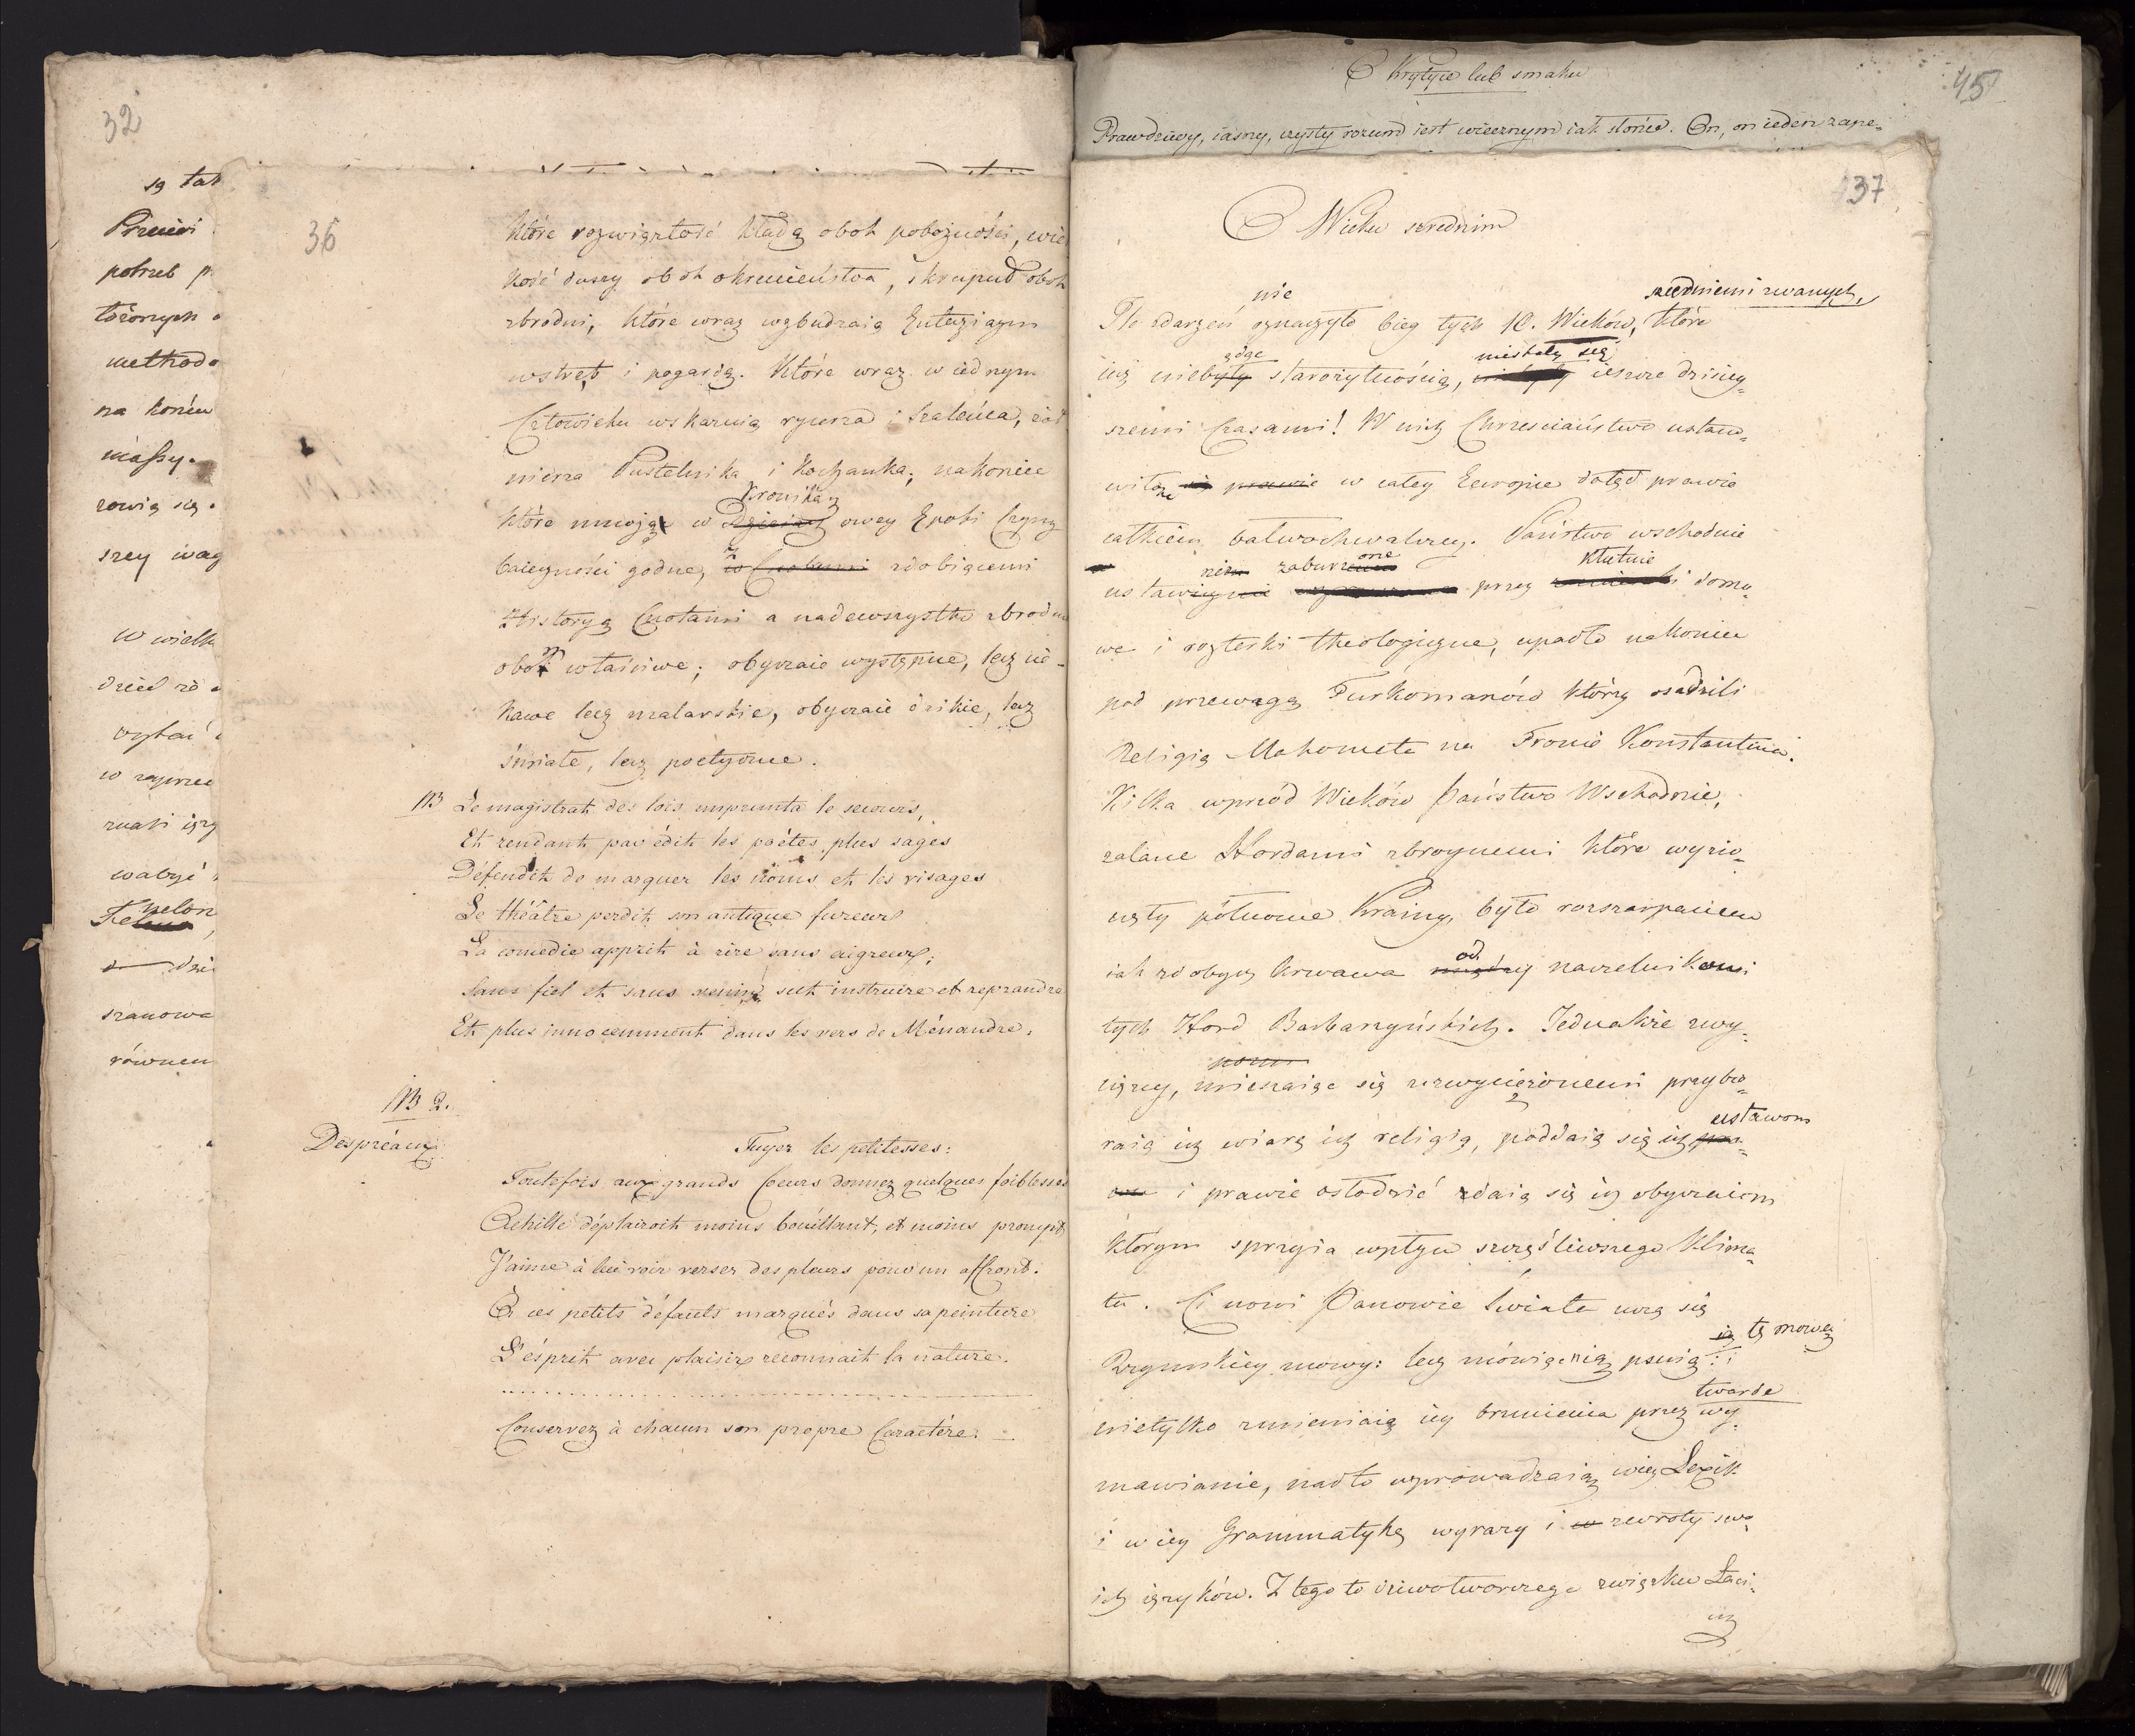 32
są tak
potrzeb p
tożonych
method
na końcu
massy.
rowią się
szey wag
w wielk
dzieł
wybai
w
znaki
wabyi
nelon
szanow
równem
36
które rozwiązłość kładą obok pobożności, wiel
kość duszy obok okrucieństwa, skrupuł obok
zbrodni, które wraz wzbudzaią Entuziazm
wstręt i pogardę. Które wraz w iednym
Człowieku wskazuią rycerza i Szaleńca, żoł
nierza Pustelnika i Kochanka; nakoniec
Kronikaz
które mnożą w Dzieiaz owey Epoki Czyny
baieczności godne, z zdobiącemi
Historyą Cnotami a nadewszystko zbrodnie
obom właściwe; obyczaie występne, lecz cie-
kawe lecz malarskie, obyczaie dzikie, lecz
śmiałe, lecz poetyczne.
NB Le magistrat des lois emprunta le secours,
Et rendant par édit les poëtes plus sages
Défendit de marquer les noms et les visages
Le théâtre perdit son antique fureur
La comedie apprit à rire sans aigreur,
Sans fiel et sans venin sut instruire et reprandre
Et plus innocemment dans les vers de Ménandre.
NB 2.
Despréaux
Fuyez les petitesses:
Toutefois aux grands Coeurs donnez quelques foiblesses
Achille déplairoit moins bouillant, et moins prompt
J'aime à lui voir verser des pleurs pour un affront.
À ces petits défauts marqués dans sa peinture
L'ésprit avec plaisir reconnait la nature.
Conservez à chacun son propre Caractére.
O Krytyce lub smaku
45
Prawdziwy, iasny, czysty rozum iest wiecznym iak słońce. On, on ieden zape-
37
O Wieku średnim
nie średniemi zwanych,
Ile zdarzeń oznaczyło bieg tych 10. Wieków, które
gdąc niestały się
iuż niebyły starożytnością, ieszcze dzisiey-
szemi Czasami! W nich Chrześciaństwo ustano-
wiło prawie w całey Europie dotąd prawie
całkiem bałwochwalczey. Państwo wschodnie
zaburzone kłótnie
ustawicznie przez i domo-
we i rozterki theologiczne, upadło nakoniec
pod przewagą Turkomanów którzy osadzili
Religią Mahometa na Tronie Konstantina.
Kilka wprzód Wieków Państwo Wschodnie,
zalane Hordami zbroynemi które wyzio-
nęły północne Krainy, było rozszarpaniem
od
iak zdobycz krwawa naczelnikami
tych Hord Barbarzyńskich. Jednakże zwy-
cięzcy, mieszaiąc się z zwyciężonemi przybie-
ustawom
raią ich wiarę ich religią, poddaią się ich
i prawie osłodzić zdaią się ich obyczaiom
którym sprzyia wpływ szczęśliwszego klima-
tu. Ci nowi Panowie Świata uczą się
tę mowę
Rzymskiey mowy: lecz mówiąc nią psuią i
twarde
nietylko zmieniaią iey brzmienia przez wy-
mawianie, nadto wprowadzaią w iey Lexik
i w iey Grammatykę wyrazy i w zwroty swo-
ich ięzyków. Z tego to dziwotworczego związku Łaci-